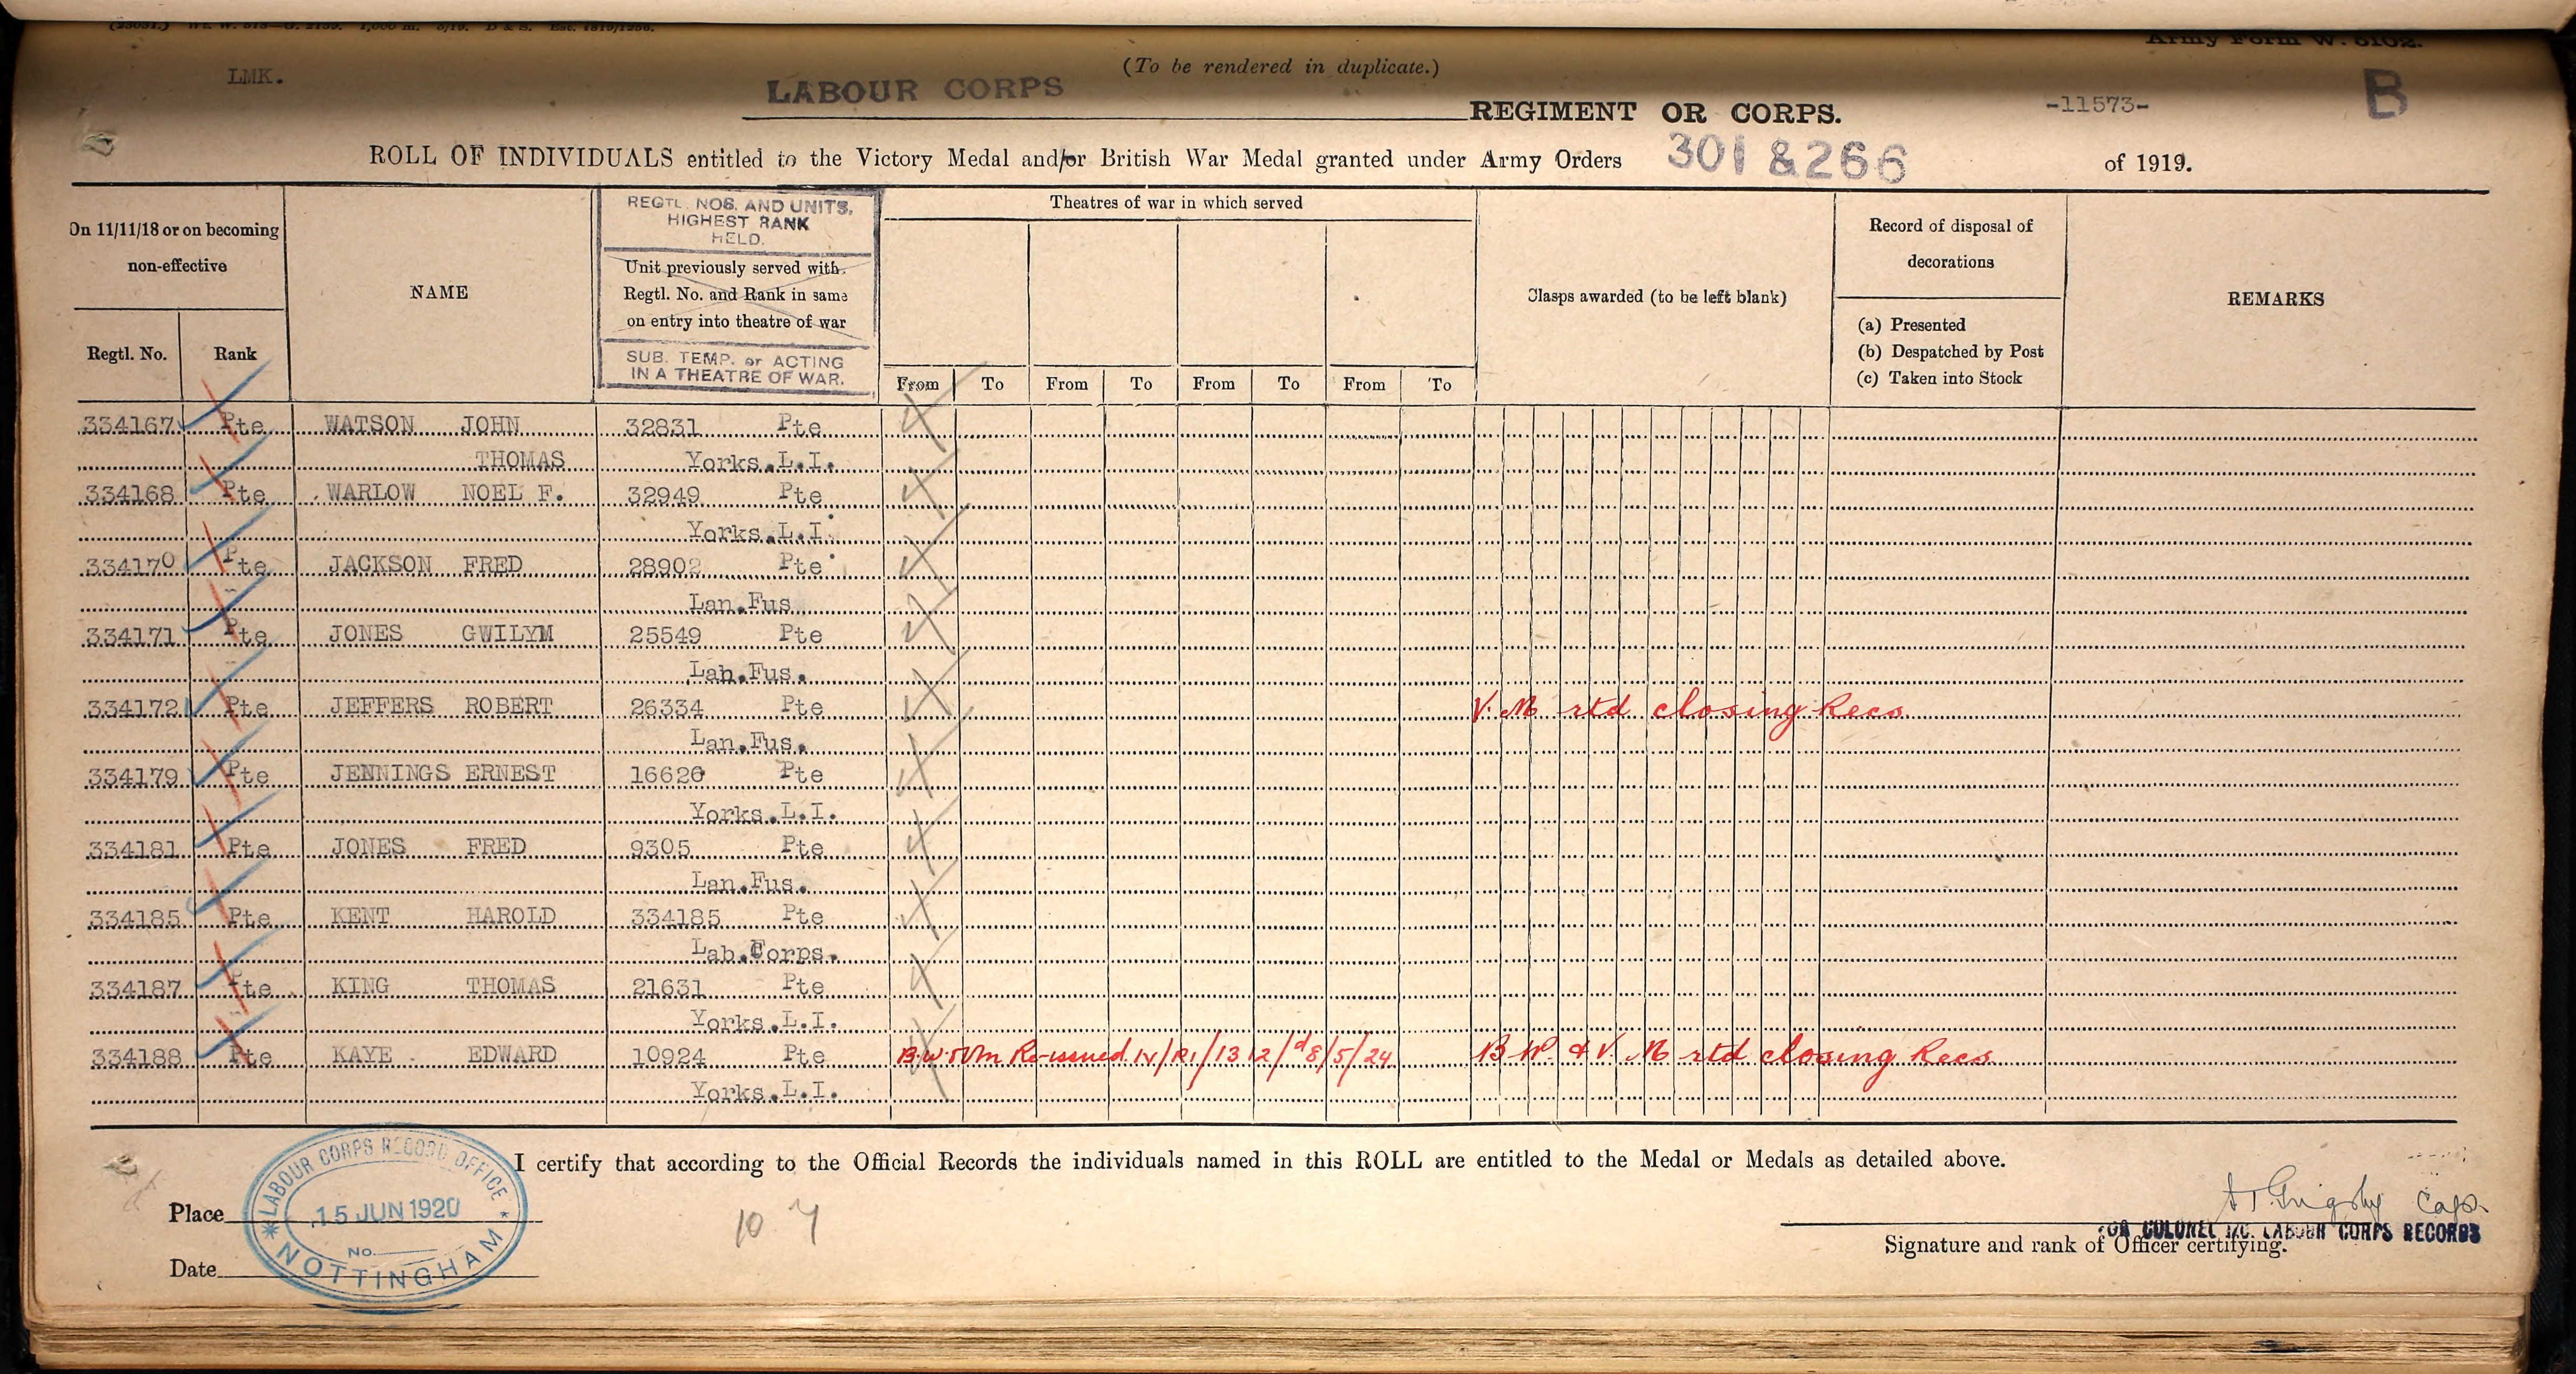 (23051.) Wt. W. 573—G. 2139. 1,000 m. 3/19. D & S. Est. 1819/1256.
Army Form W. 5102.
LMK.
(To be rendered in duplicate.)
LABOUR CORPS
REGIMENT OR CORPS.
-11573-
B
ROLL OF INDIVIDUALS entitled to the Victory Medal and/or British War Medal granted under Army Orders 301 & 266 of 1919.
On 11/11/18 or on becoming
non-effective
Regtl. No. Rank
NAME
REGTL. NOS. AND UNITS,
HIGHEST RANK
HELD.
Unit previously served with.
Regtl. No. and Rank in same
on entry into theatre of war
SUB. TEMP. or ACTING
IN A THEATRE OF WAR.
Theatres of war in which served
From To From To From To From To
Clasps awarded (to be left blank)
Record of disposal of
decorations
(a) Presented
(b) Despatched by Post
(c) Taken into Stock
REMARKS
334167 Pte WATSON JOHN 32831 Pte
THOMAS Yorks.L.I.
334168 Pte WARLOW NOEL F. 32949 Pte
Yorks.L.I.
334170 Pte JACKSON FRED 28902 Pte
Lan.Fus
334171 Pte JONES GWILYM 25549 Pte
Lan.Fus.
334172 Pte JEFFERS ROBERT 26334 Pte V. M rtd closing Recs
Lan.Fus.
334179 Pte JENNINGS ERNEST 16626 Pte
Yorks.L.I.
334181 Pte JONES FRED 9305 Pte
Lan.Fus.
334185 Pte KENT HAROLD 334185 Pte
Lab.Corps.
334187 Pte KING THOMAS 21631 Pte
Yorks.L.I.
334188 Pte KAYE EDWARD 10924 Pte B.W. & V.M Re-issued /1312/d 8/5/24 B W. & V. M rtd closing Recs
Yorks.L.I.
I certify that according to the Official Records the individuals named in this ROLL are entitled to the Medal or Medals as detailed above.
LABOUR CORPS RECORD OFFICE
15 JUN 1920
No.
NOTTINGHAM
Place
Date
10
Grigsby Capt.
FOR COLONEL I/C. LABOUR CORPS RECORDS
Signature and rank of Officer certifying.